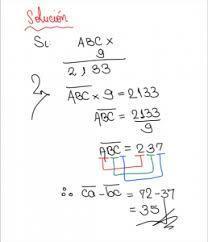 Solución
Si ABC ×
9
2133
ABC × 9 = 2133
ABC = 2133
9
ABC = 237
∴ ca - bc = 72 - 37
= 35